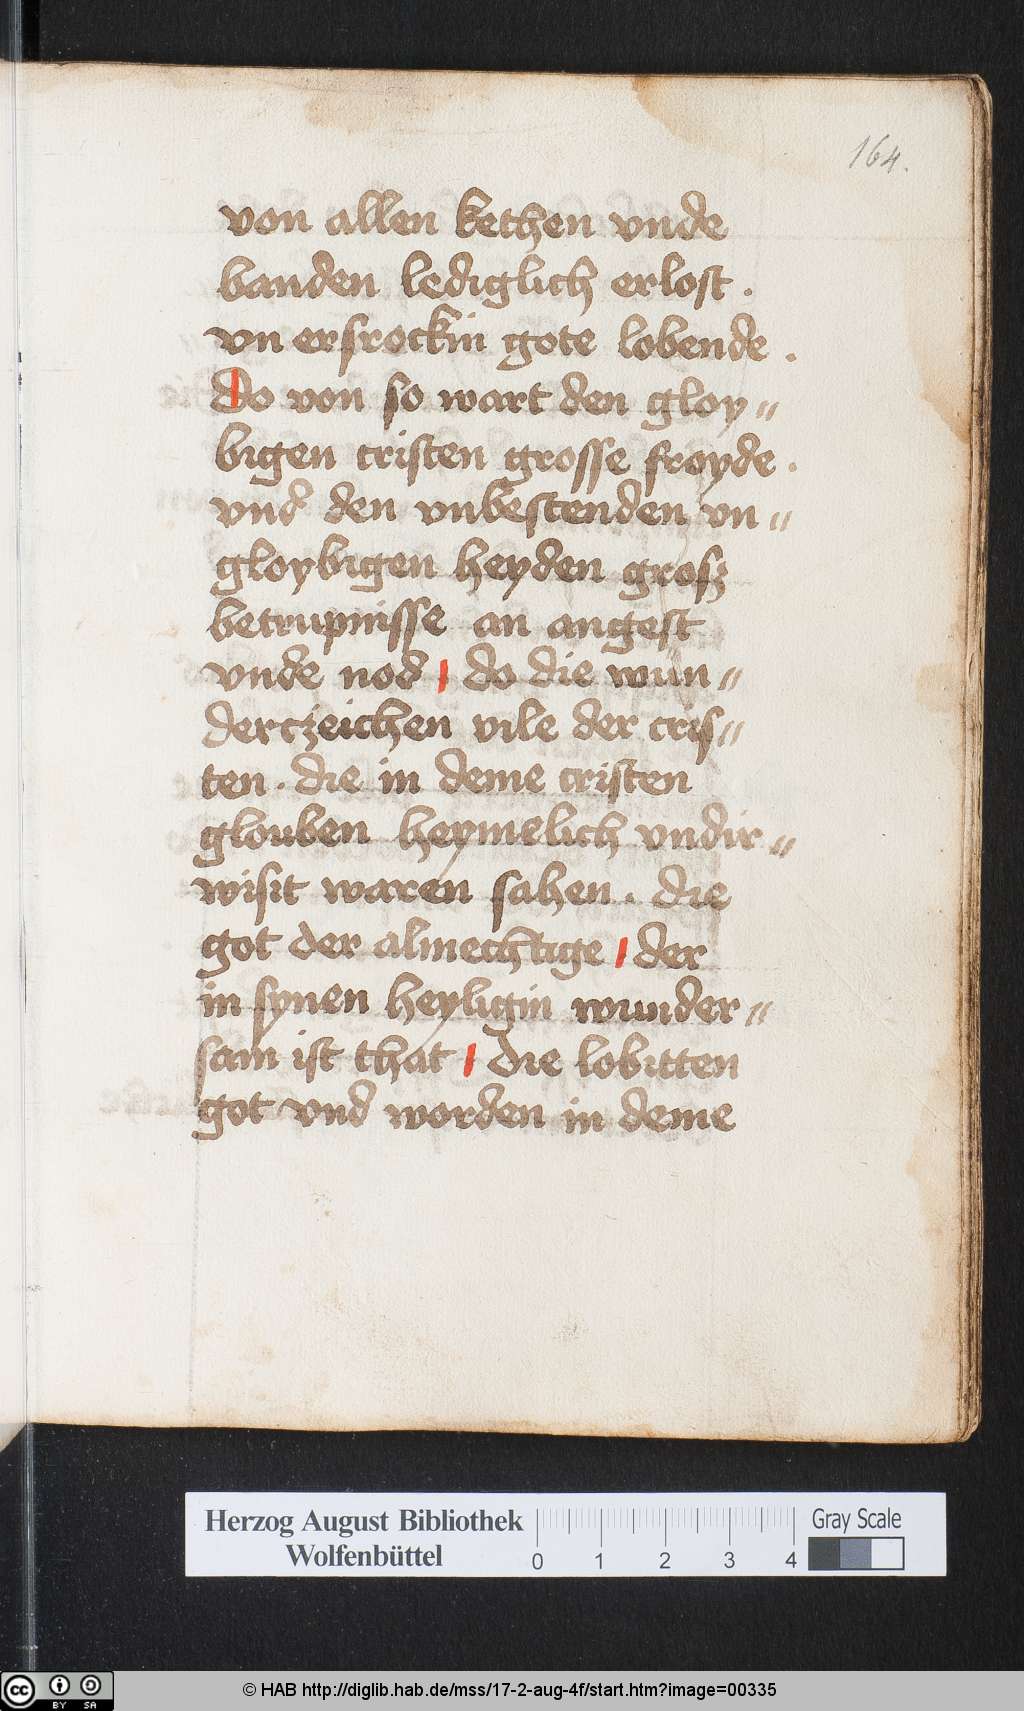 164.
von allen kethen vnde
banden lediglich erlost .
vn ersrockin gote lobende .
do von so wart den gloy〃
bigen cristen grosse froyde .
vnd den vnbestenden vn〃
gloybigen heyden grosz
betrupnisse an angest
vnde nod do die wun〃
derczeichen vile der cris〃
ten . die in deme cristen
glouben heymelich vndir〃
wisit waren sahen . die
got der almechtige der
in synen heyligin wunder〃
sam ist that die lobitten
got vnd worden in deme
Herzog August Bibliothek
Wolfenbüttel
0 1 2 3 4
Gray Scale
cc BY SA
© HAB http://diglib.hab.de/mss/17-2-aug-4f/start.htm?image=00335